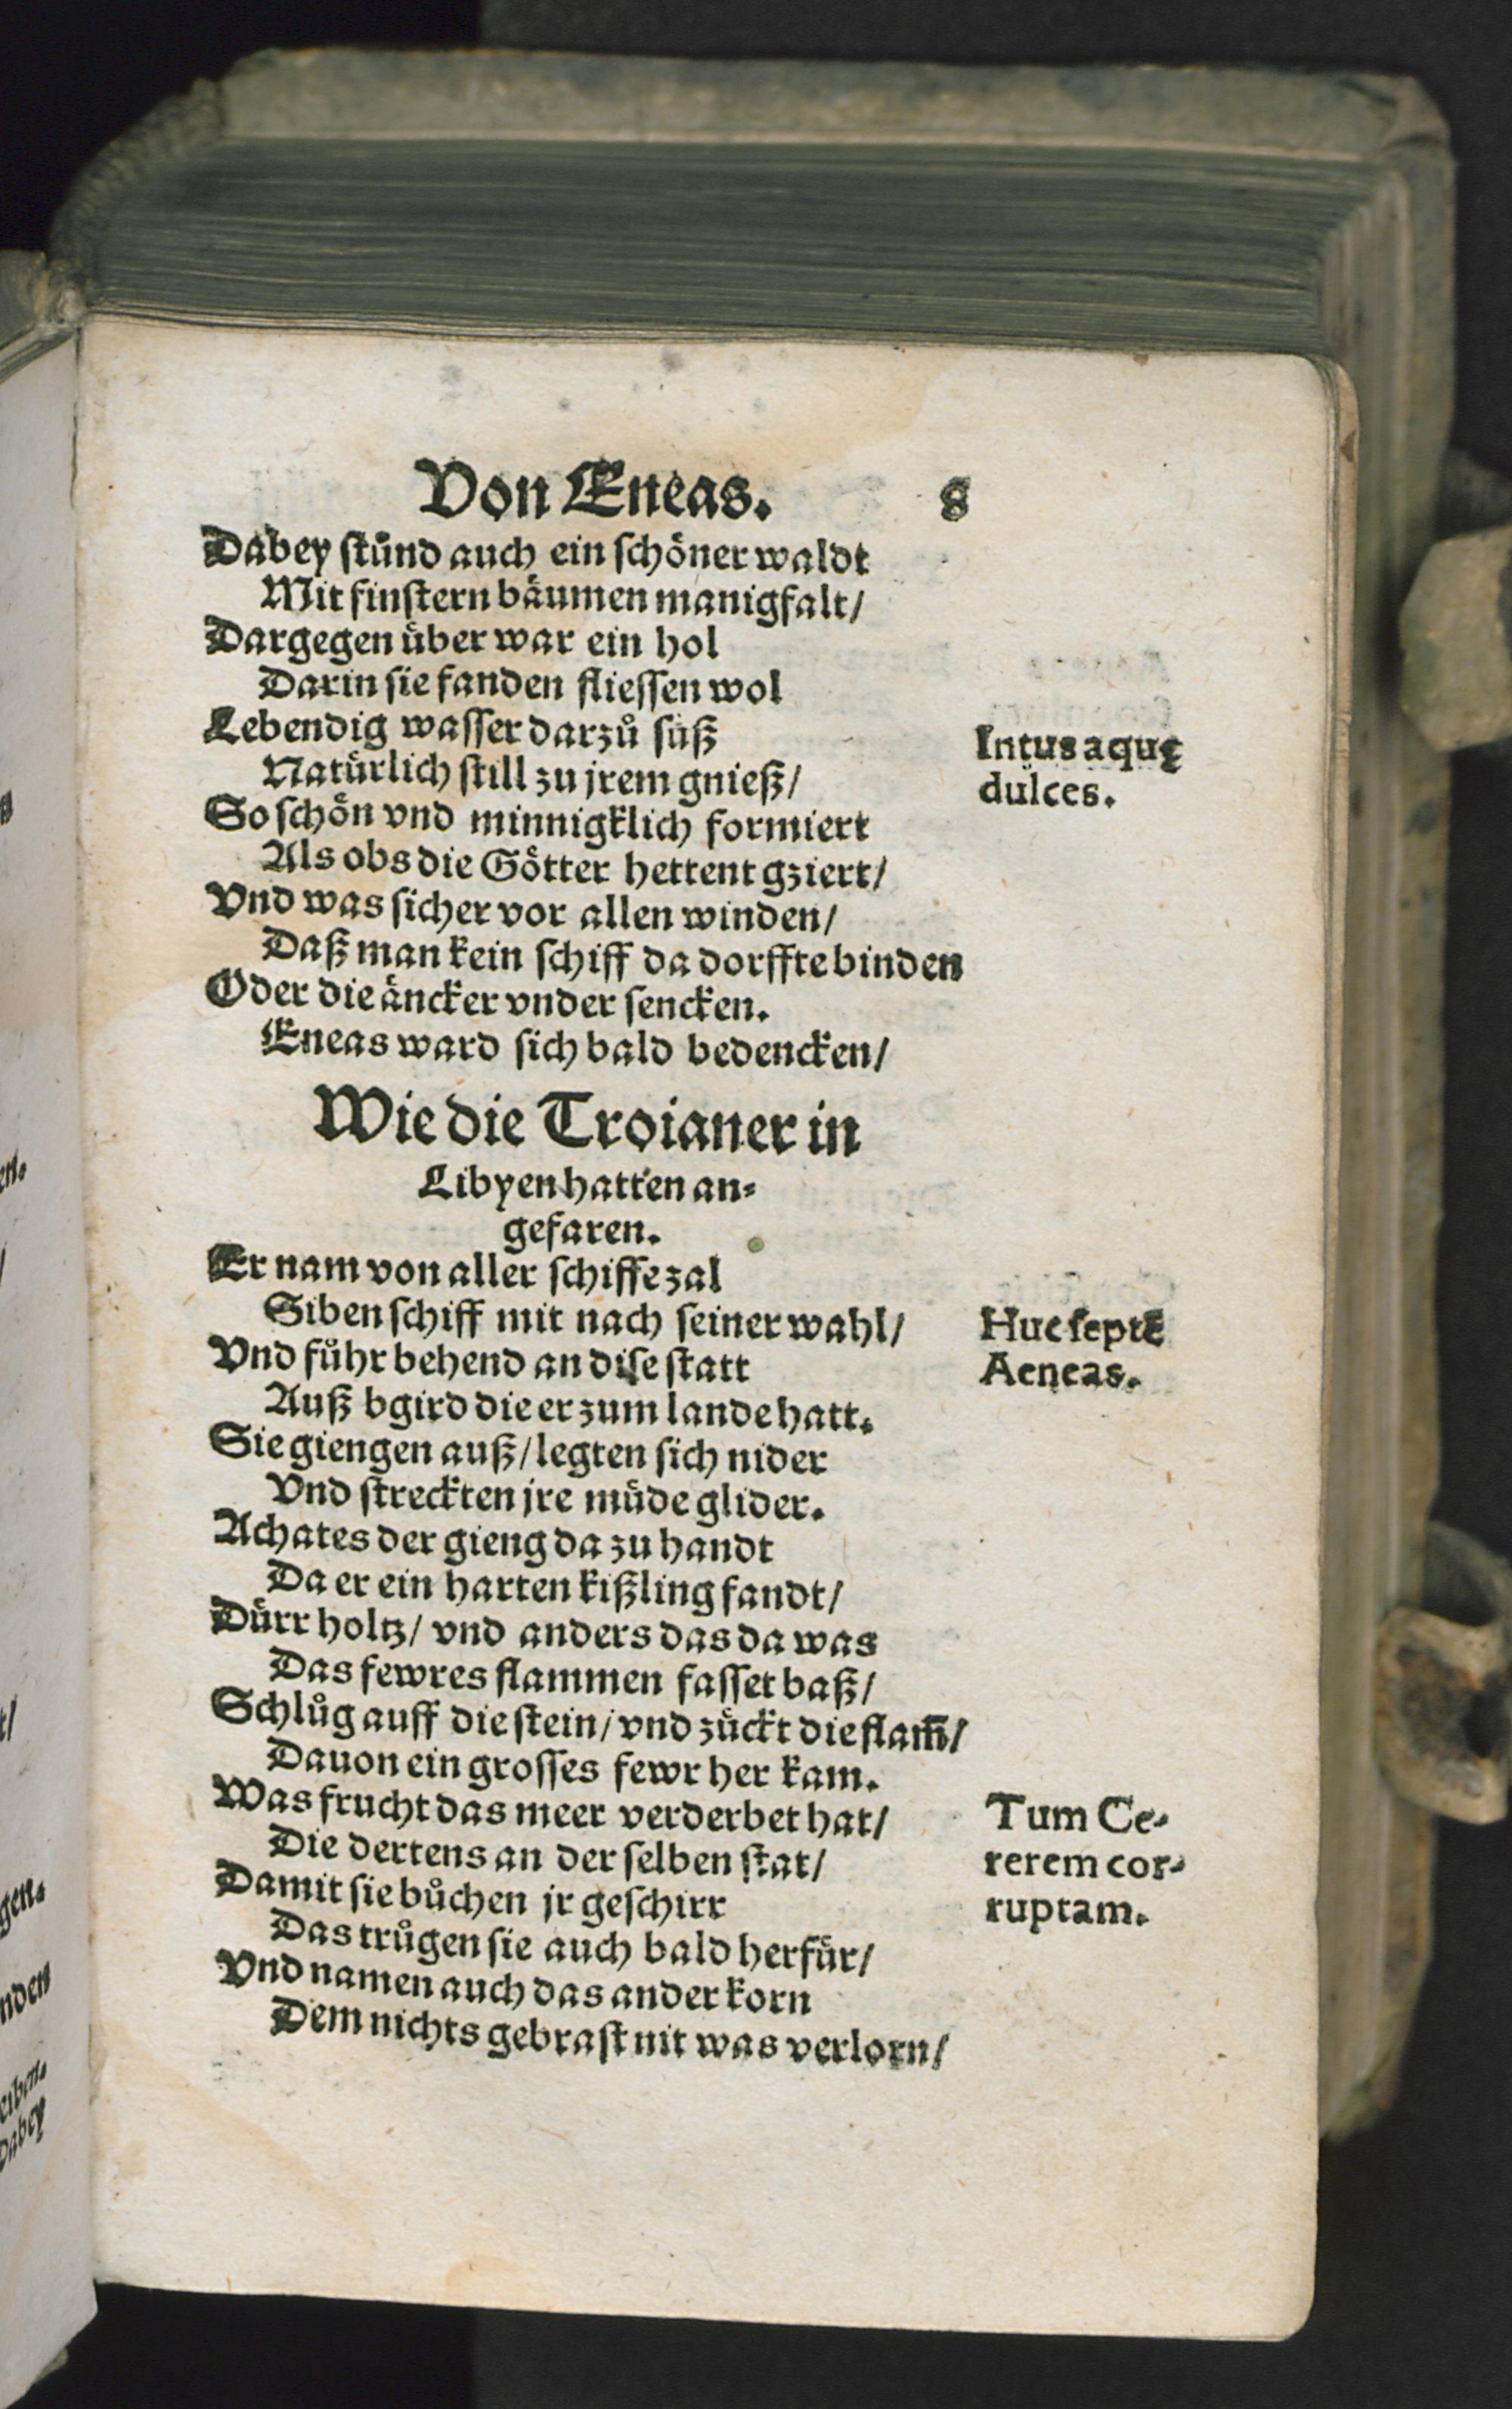 Von Eneas. 8
Dabey stůnd auch ein schöner waldt
Mit finstern bäumen manigfalt/
Dargegen über war ein hol
Darin sie fanden fliessen wol
Lebendig wasser darzů süß
Natürlich still zu jrem gnieß/
Intus aquę
dulces.
So schön vnd minnigklich formiert
Als obs die Götter hettent gziert/
Vnd was sicher vor allen winden/
Daß man kein schiff da dorffte binden
Oder die äncker vnder sencken.
Eneas ward sich bald bedencken/
Wie die Troianer in
Libyen hatten an-
gefaren.
Er nam von aller schiffe zal
Siben schiff mit nach seiner wahl/
Vnd fůhr behend an dise statt
Huc septē
Aeneas.
Auß bgird die er zum lande hatt.
Sie giengen auß/ legten sich nider
Vnd streckten jre müde glider.
Achates der gieng da zu handt
Da er ein harten kißling fandt/
Dürr holtz/ vnd anders das da was
Das fewres flammen fasset baß/
Schlůg auff die stein/ vnd zückt die flam̄/
Dauon ein grosses fewr her kam.
Was frucht das meer verderbet hat/
Die dertens an der selben stat/
Damit sie bůchen jr geschirr
Tum Ce-
rerem cor-
ruptam.
Das trůgen sie auch bald herfür/
Vnd namen auch das ander korn
Dem nichts gebrast nit was verlorn/
gen.
nden
eiben.
Dabey